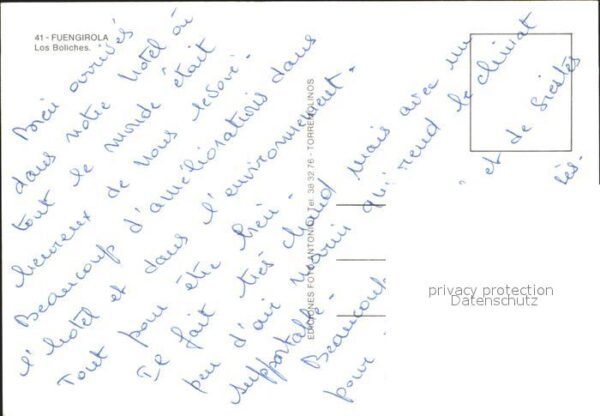 41 - FUENGIROLA
Los Boliches.
Bien arrivés
dans notre hotel où
tout le monde était
heureux de nous revoir.
Beaucoup d'améliorations dans
l'hotel et dans l'environnement.
Tout pour être bien.
Il fait très chaud mais avec un
peu d'air marin qui rend le climat
supportable.
Beaucoup
et de siestes
pour
tés.
EDICIONES FOTO ANTONIO. Tel. 38 32 76 - TORREMOLINOS
privacy protection
Datenschutz